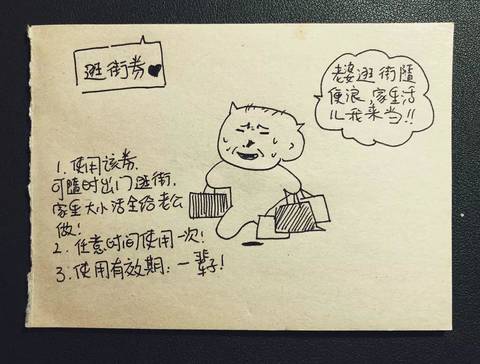 逛街券♥
老婆逛街随
便浪,家里活
儿我来当!!
1.使用该券,
可随时出门逛街,
家里大小活全给老公
做!
2.任意时间使用一次!
3.使用有效期:一辈子!